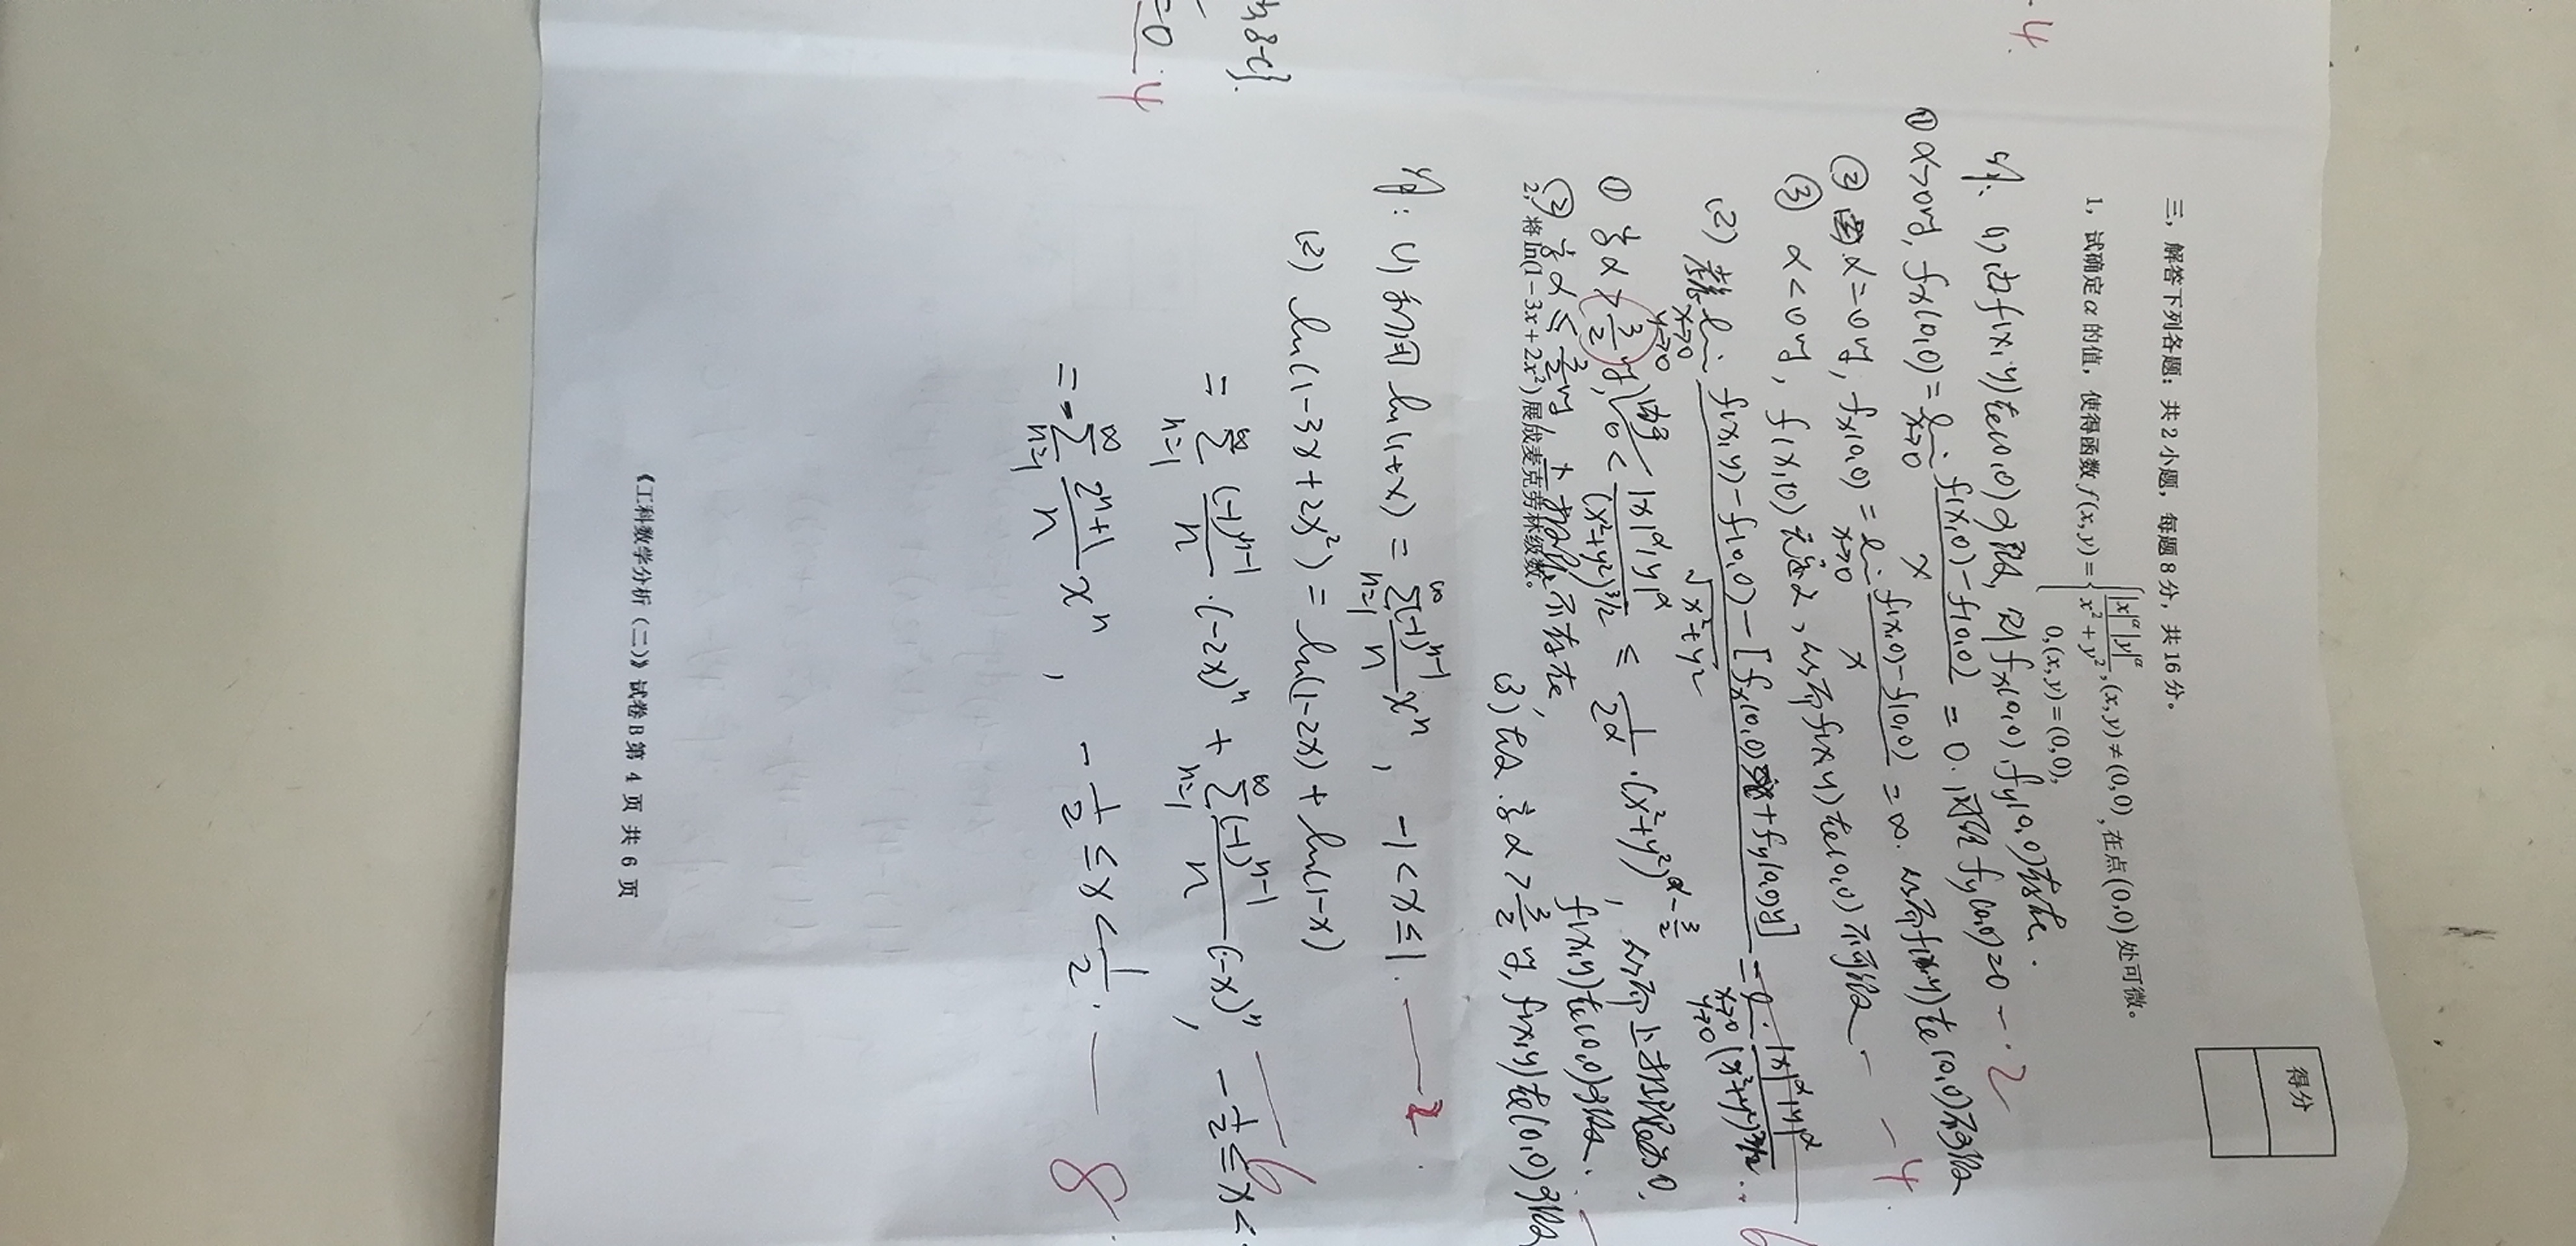 -4.
三，解答下列各题：共 2 小题，每题 8 分，共 16 分。
得分
1，试确定 α 的值，使得函数 f(x,y) = { |x|^α|y|^α / (x²+y²), (x,y) ≠ (0,0) ; 0, (x,y) = (0,0), 在点(0,0)处可微。
解: (1) 由f(x,y)在(0,0)可微, 则 fx(0,0), fy(0,0)存在.
① α>0时, fx(0,0) = lim x→0 (f(x,0)-f(0,0))/x = 0. 同理 fy(0,0)=0 — 2
② α=0时, fx(0,0) = lim x→0 (f(x,0)-f(0,0))/x = ∞. 从而f(x,y)在(0,0)不可微
③ α<0时, f(x,0)无定义, 从而f(x,y)在(0,0)不可微. — 4
(2) 考虑 lim x→0 y→0 (f(x,y)-f(0,0)-[fx(0,0)x+fy(0,0)y])/√(x²+y²) = lim x→0 y→0 |x|^α|y|^α/(x²+y²)^3/2 .. 6
① 当 α > 3/2 时, 由于 0 < |x|^α|y|^α/(x²+y²)^3/2 ≤ 1/2^α · (x²+y²)^(α-3/2), 从而上式极限为0,
f(x,y)在(0,0)可微.
② 当 α ≤ 3/2 时, 上式极限不存在,
2，将 ln(1-3x+2x²) 展成麦克劳林级数。
(3) 故 当 α > 3/2 时, f(x,y)在(0,0)可微
解: (1) 利用 ln(1+x) = Σ n=1 ∞ (-1)^(n-1)/n x^n, -1<x≤1. — 2
(2) ln(1-3x+2x²) = ln(1-2x) + ln(1-x)
= Σ n=1 ∞ (-1)^(n-1)/n · (-2x)^n + Σ n=1 ∞ (-1)^(n-1)/n (-x)^n, -1/2 ≤ x < — 6
= -Σ n=1 ∞ (2^n+1)/n x^n, -1/2 ≤ x < 1/2. — 8
=0. 4
《工科数学分析（二）》试卷 B 第 4 页 共 6 页